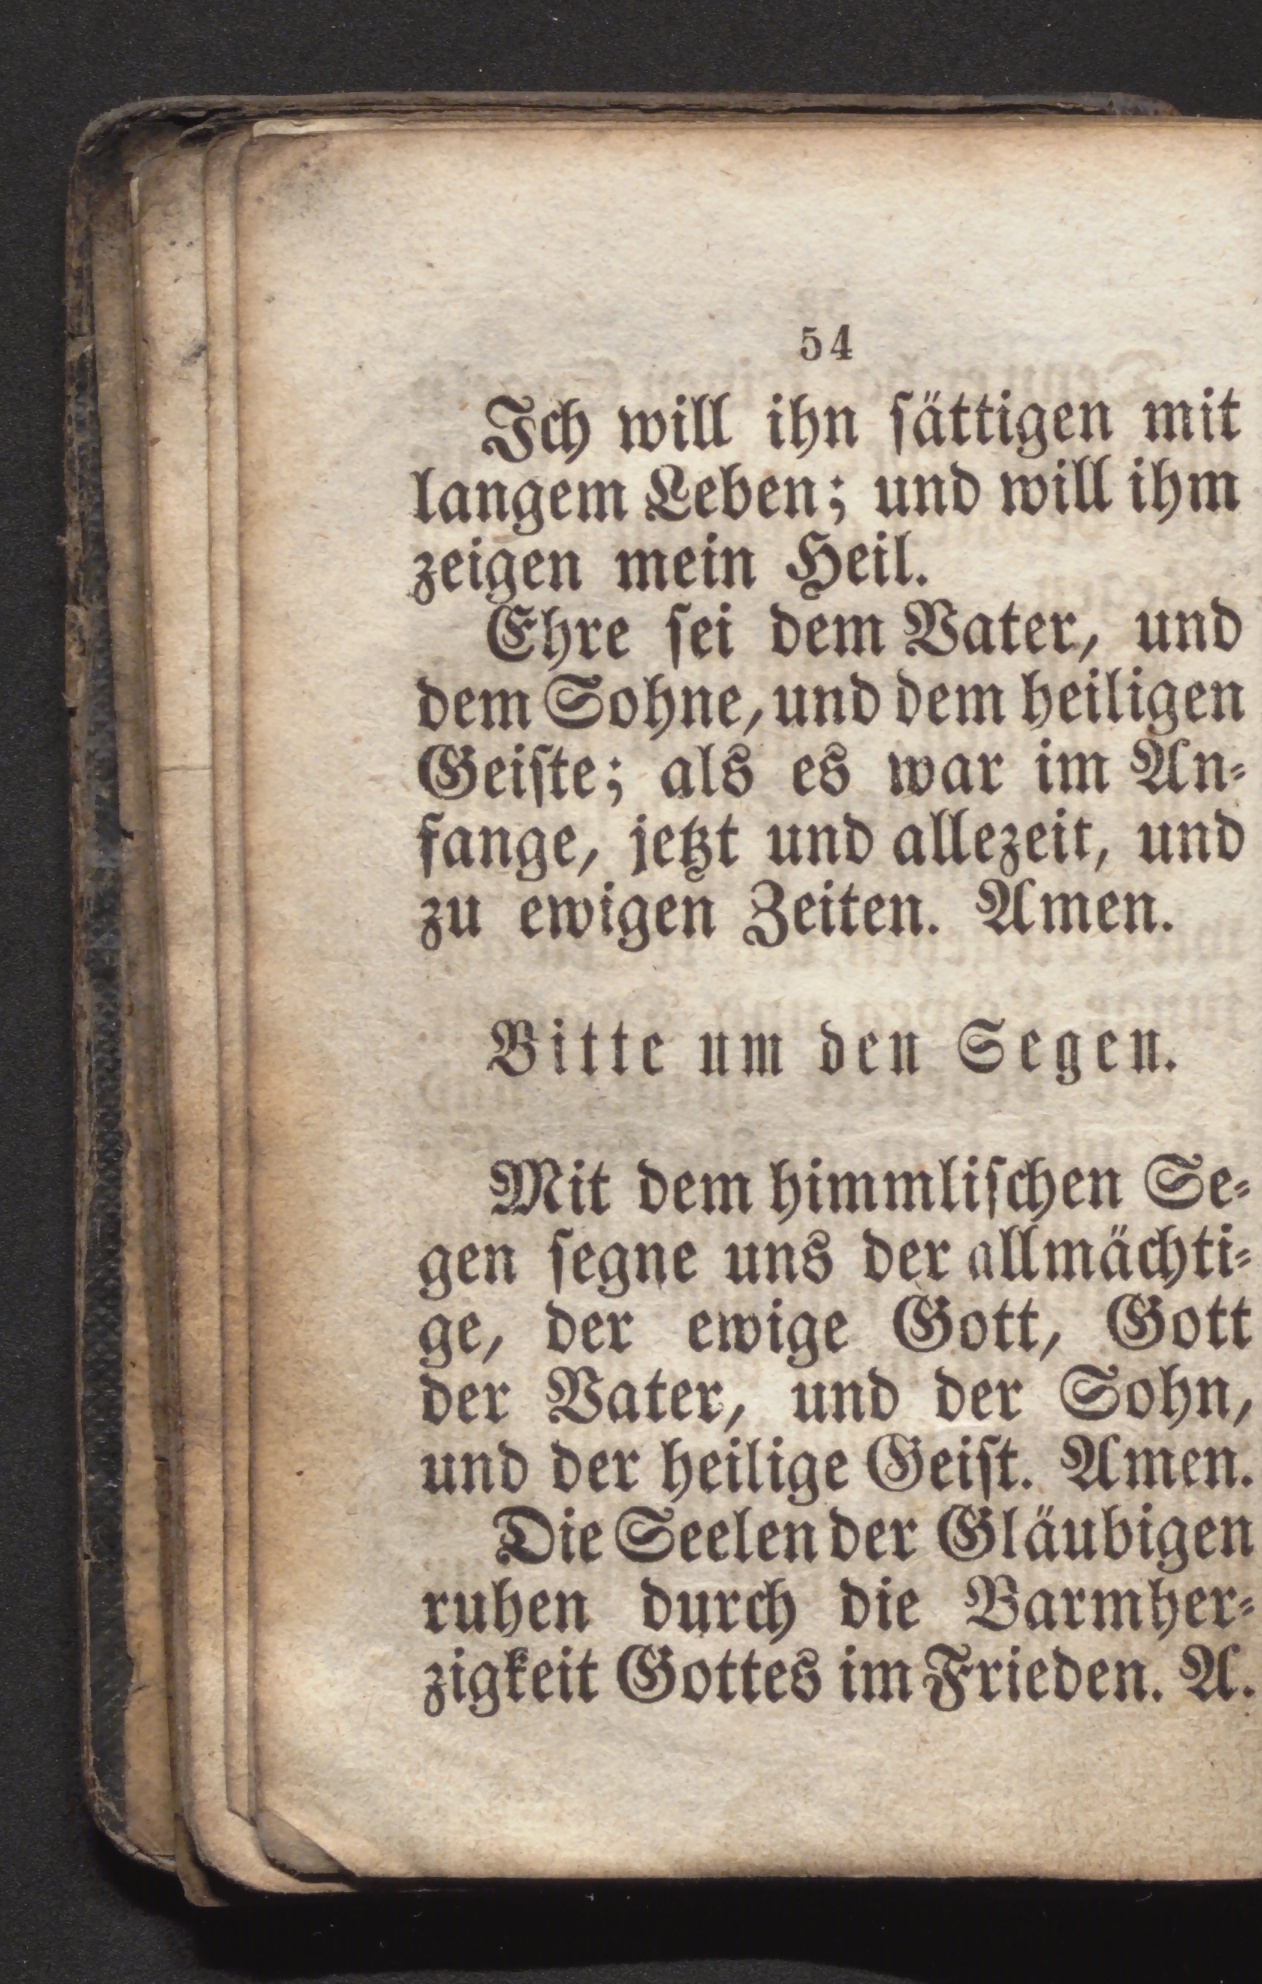 54
Ich will ihn sättigen mit
langem Leben; und will ihm
zeigen mein Heil.
Ehre sei dem Vater, und
dem Sohne, und dem heiligen
Geiste; als es war im An-
fange, jetzt und allezeit, und
zu ewigen Zeiten. Amen.
Bitte um den Segen.
Mit dem himmlischen Se-
gen segne uns der allmächti-
ge, der ewige Gott, Gott
der Vater, und der Sohn,
und der heilige Geist. Amen.
Die Seelen der Gläubigen
ruhen durch die Barmher-
zigkeit Gottes im Frieden. A.